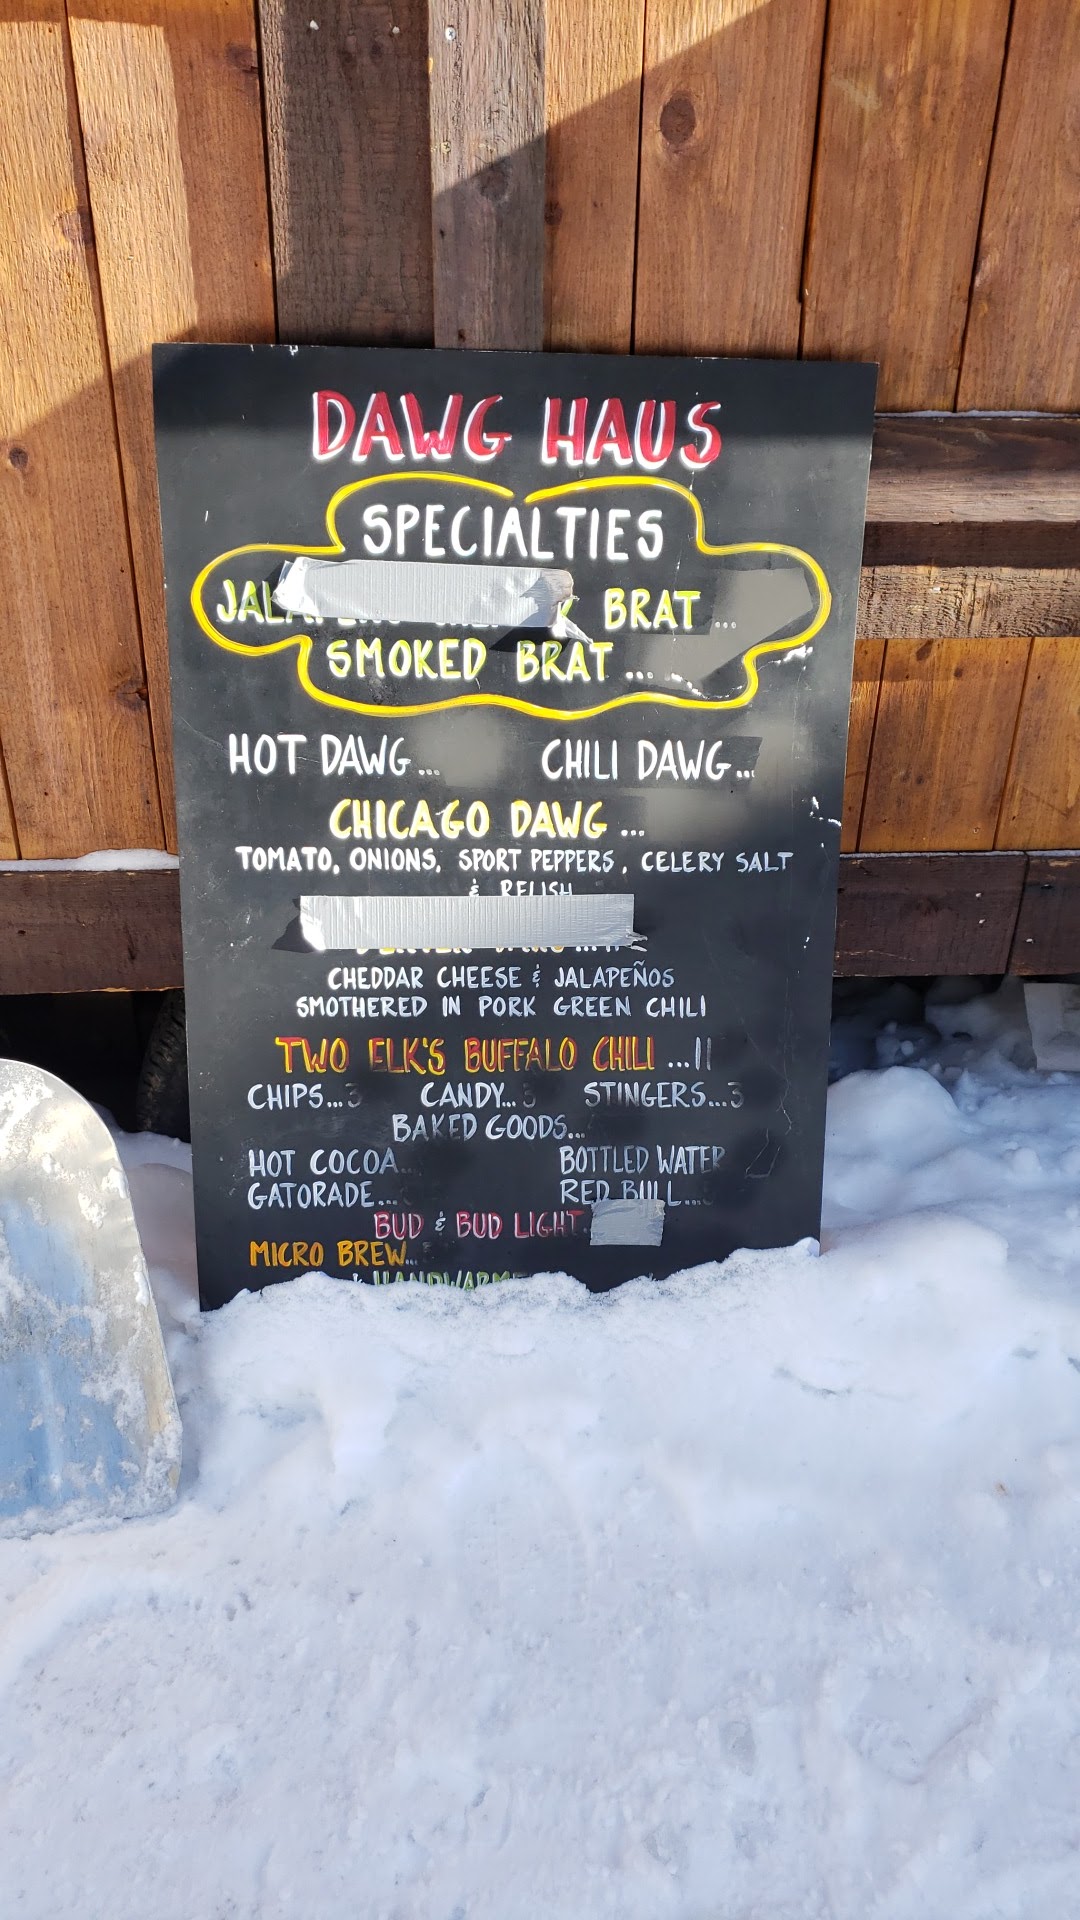 DAWG HAUS
SPECIALTIES
BRAT ...
SMOKED BRAT ...
HOT DAWG... CHILI DAWG...
CHICAGO DAWG ...
TOMATO, ONIONS, SPORT PEPPERS, CELERY SALT
& RELISH
CHEDDAR CHEESE & JALAPEÑOS
SMOTHERED IN PORK GREEN CHILI
TWO ELK'S BUFFALO CHILI ...11
CHIPS...3 CANDY...3 STINGERS...3
BAKED GOODS...
HOT COCOA... BOTTLED WATER
GATORADE... RED BULL...
BUD & BUD LIGHT
MICRO BREW...